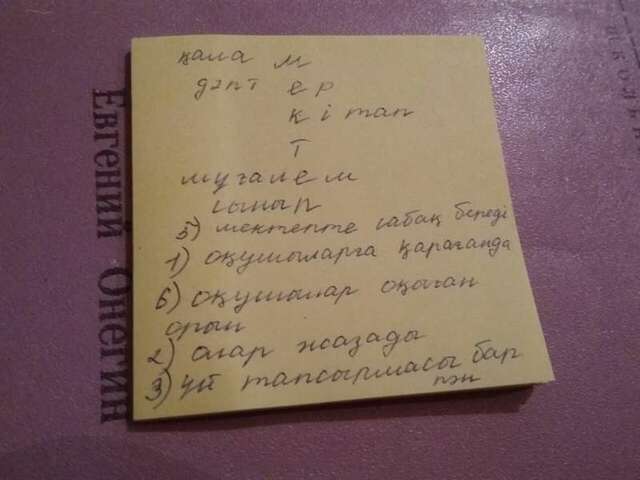 қала м
дәпт ер
к і тап
т
мұғалем
сынып
5) мектепте сабақ береді
1) оқушыларға қарағанда
6) оқушылар оқыған
орын
2) олар жазады
3) үй тапсырмасы бар
пән
Евгений Онегин